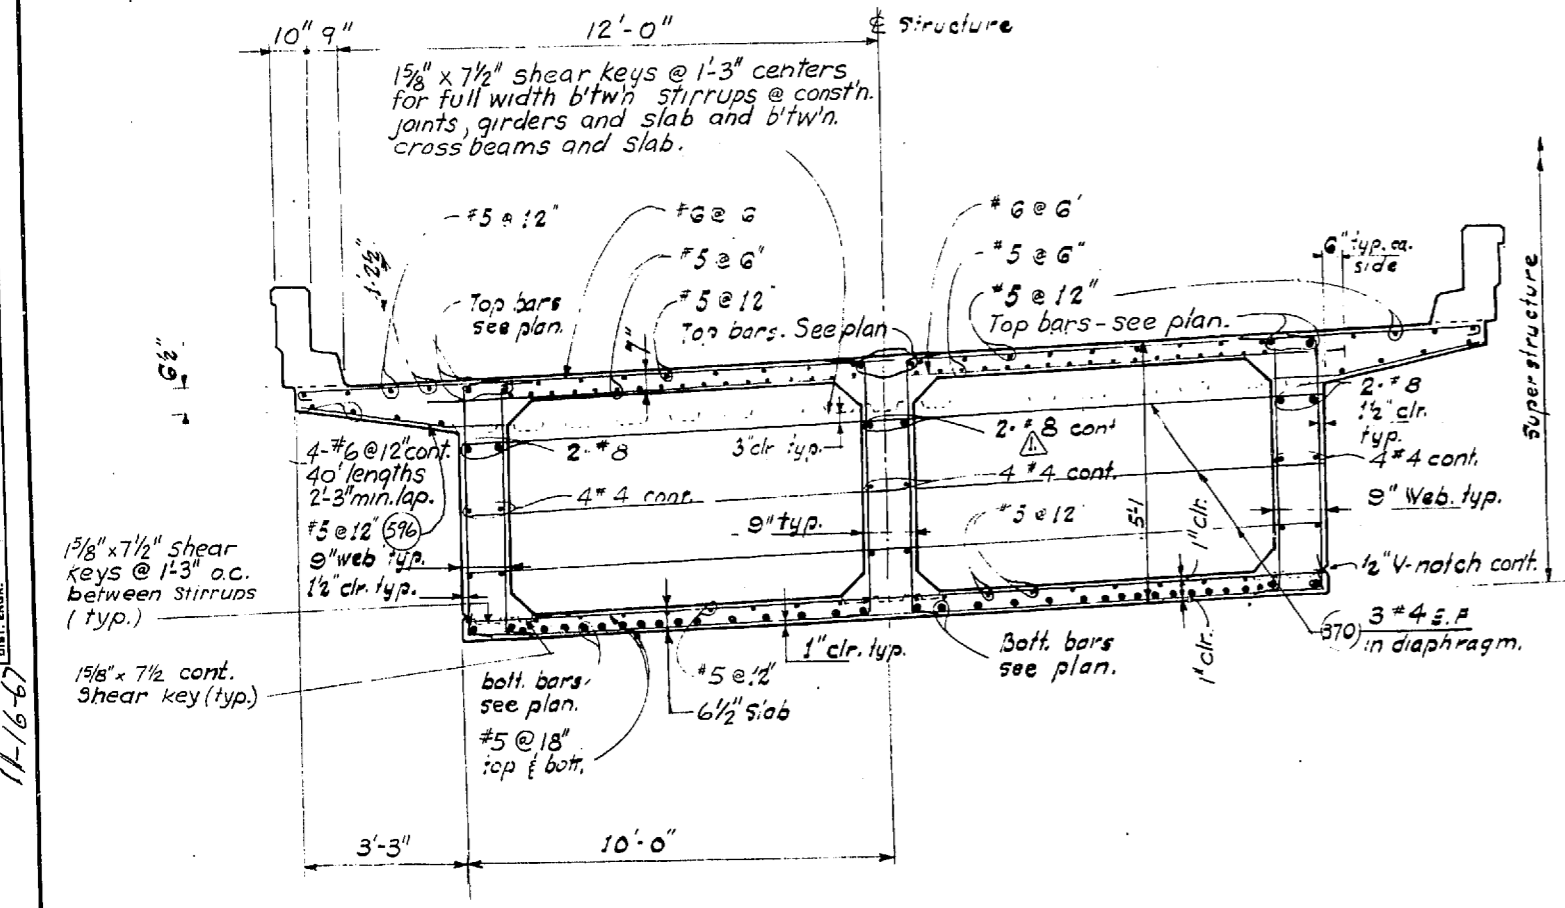 10" 9"
12'-0"
℄ Structure
1⅝" x 7½" shear keys @ 1'-3" centers
for full width b'tw'n stirrups @ const'n.
joints, girders and slab and b'tw'n.
cross beams and slab.
#5 @ 12"
#6 @ 6
# 6 @ 6'
#5 @ 6"
#5 @ 6"
6" typ. ea.
side
1'-2½"
Top bars
see plan.
#5 @ 12
Top bars. See plan
#5 @ 12"
Top bars - see plan.
7"
6½"
Superstructure
4-#6 @ 12" cont.
40' lengths
2'-3" min. lap.
#5 @ 12" 596
9" web typ.
1½" clr. typ.
2-#8
4#4 cont.
3" clr typ.
2-#8 cont
4 #4 cont.
9" typ.
#5 @ 12
5'-1
1" clr.
2-#8
1½" clr.
typ.
4#4 cont.
9" Web. typ.
½" V-notch cont.
1⅝" x 7½" shear
keys @ 1'-3" o.c.
between stirrups
(typ.)
1⅝" x 7½ cont.
Shear key (typ.)
bott. bars-
see plan.
#5 @ 18"
top & bott.
#5 @ 12"
6½" Slab
1" clr. typ.
Bott. bars
see plan.
1" clr.
370 3 #4 E.F
in diaphragm.
3'-3"
10'-0"
DIST. ENGR.
11-16-67